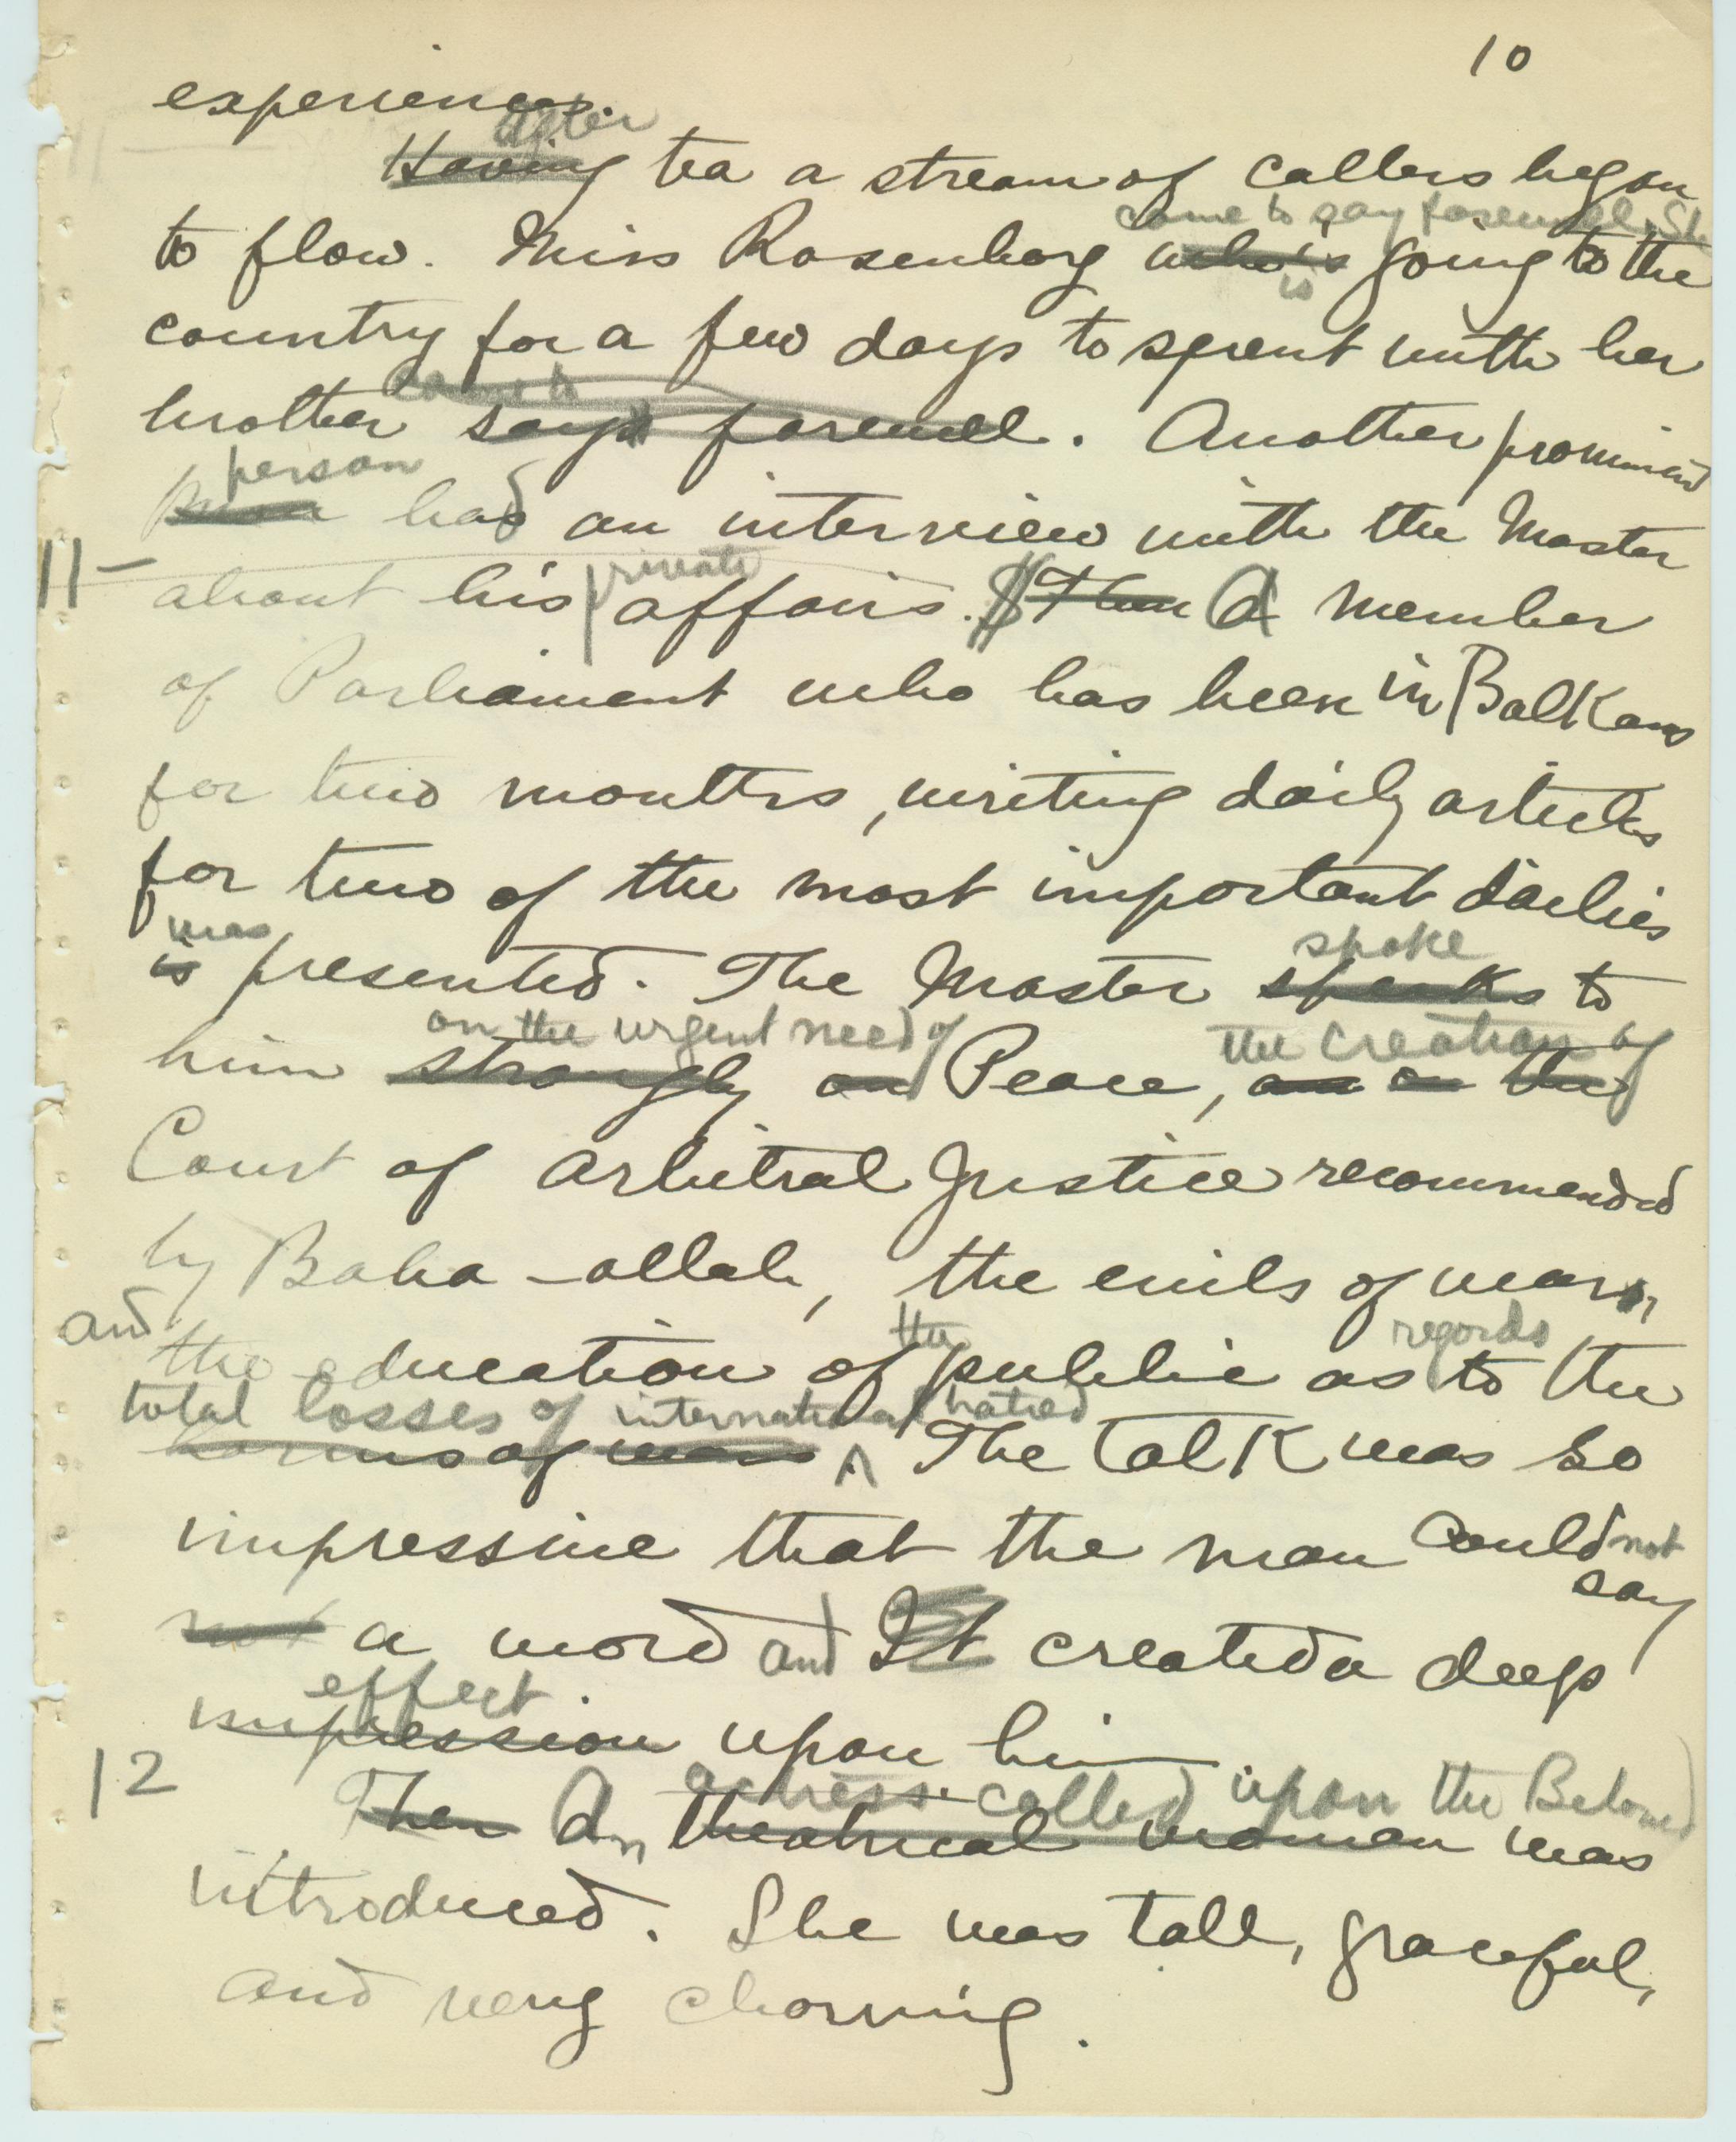 10
experience.
After
Having tea a stream of callers began
came to say farewell. She
to flow. Miss Rosenberg who's going to the
is
country for a few days to spent with her
came to
brother says farewell. Another prominent
person
man had an interview with the Master
11 -
private
about his affairs. Then A member
of Parliament who has been in Balkans
for two months, writing daily articles
for two of the most important dailies
was
spoke
is presented. The Master speaks to
on the urgent need of
the creation of
him strongly on Peace, an on the
Court of Arbitral Justice recommended
by Baha-ollah, the evils of war,
and
the
regards
the education of public as to the
total losses of international hatred
harms of war. The talk was so
impressive that the man could not
say
not a word and It created a deep
effect
impression upon him.
12
actress called upon the Beloved
Then An theatrical woman was
introduced. She was tall, graceful,
and very charming.